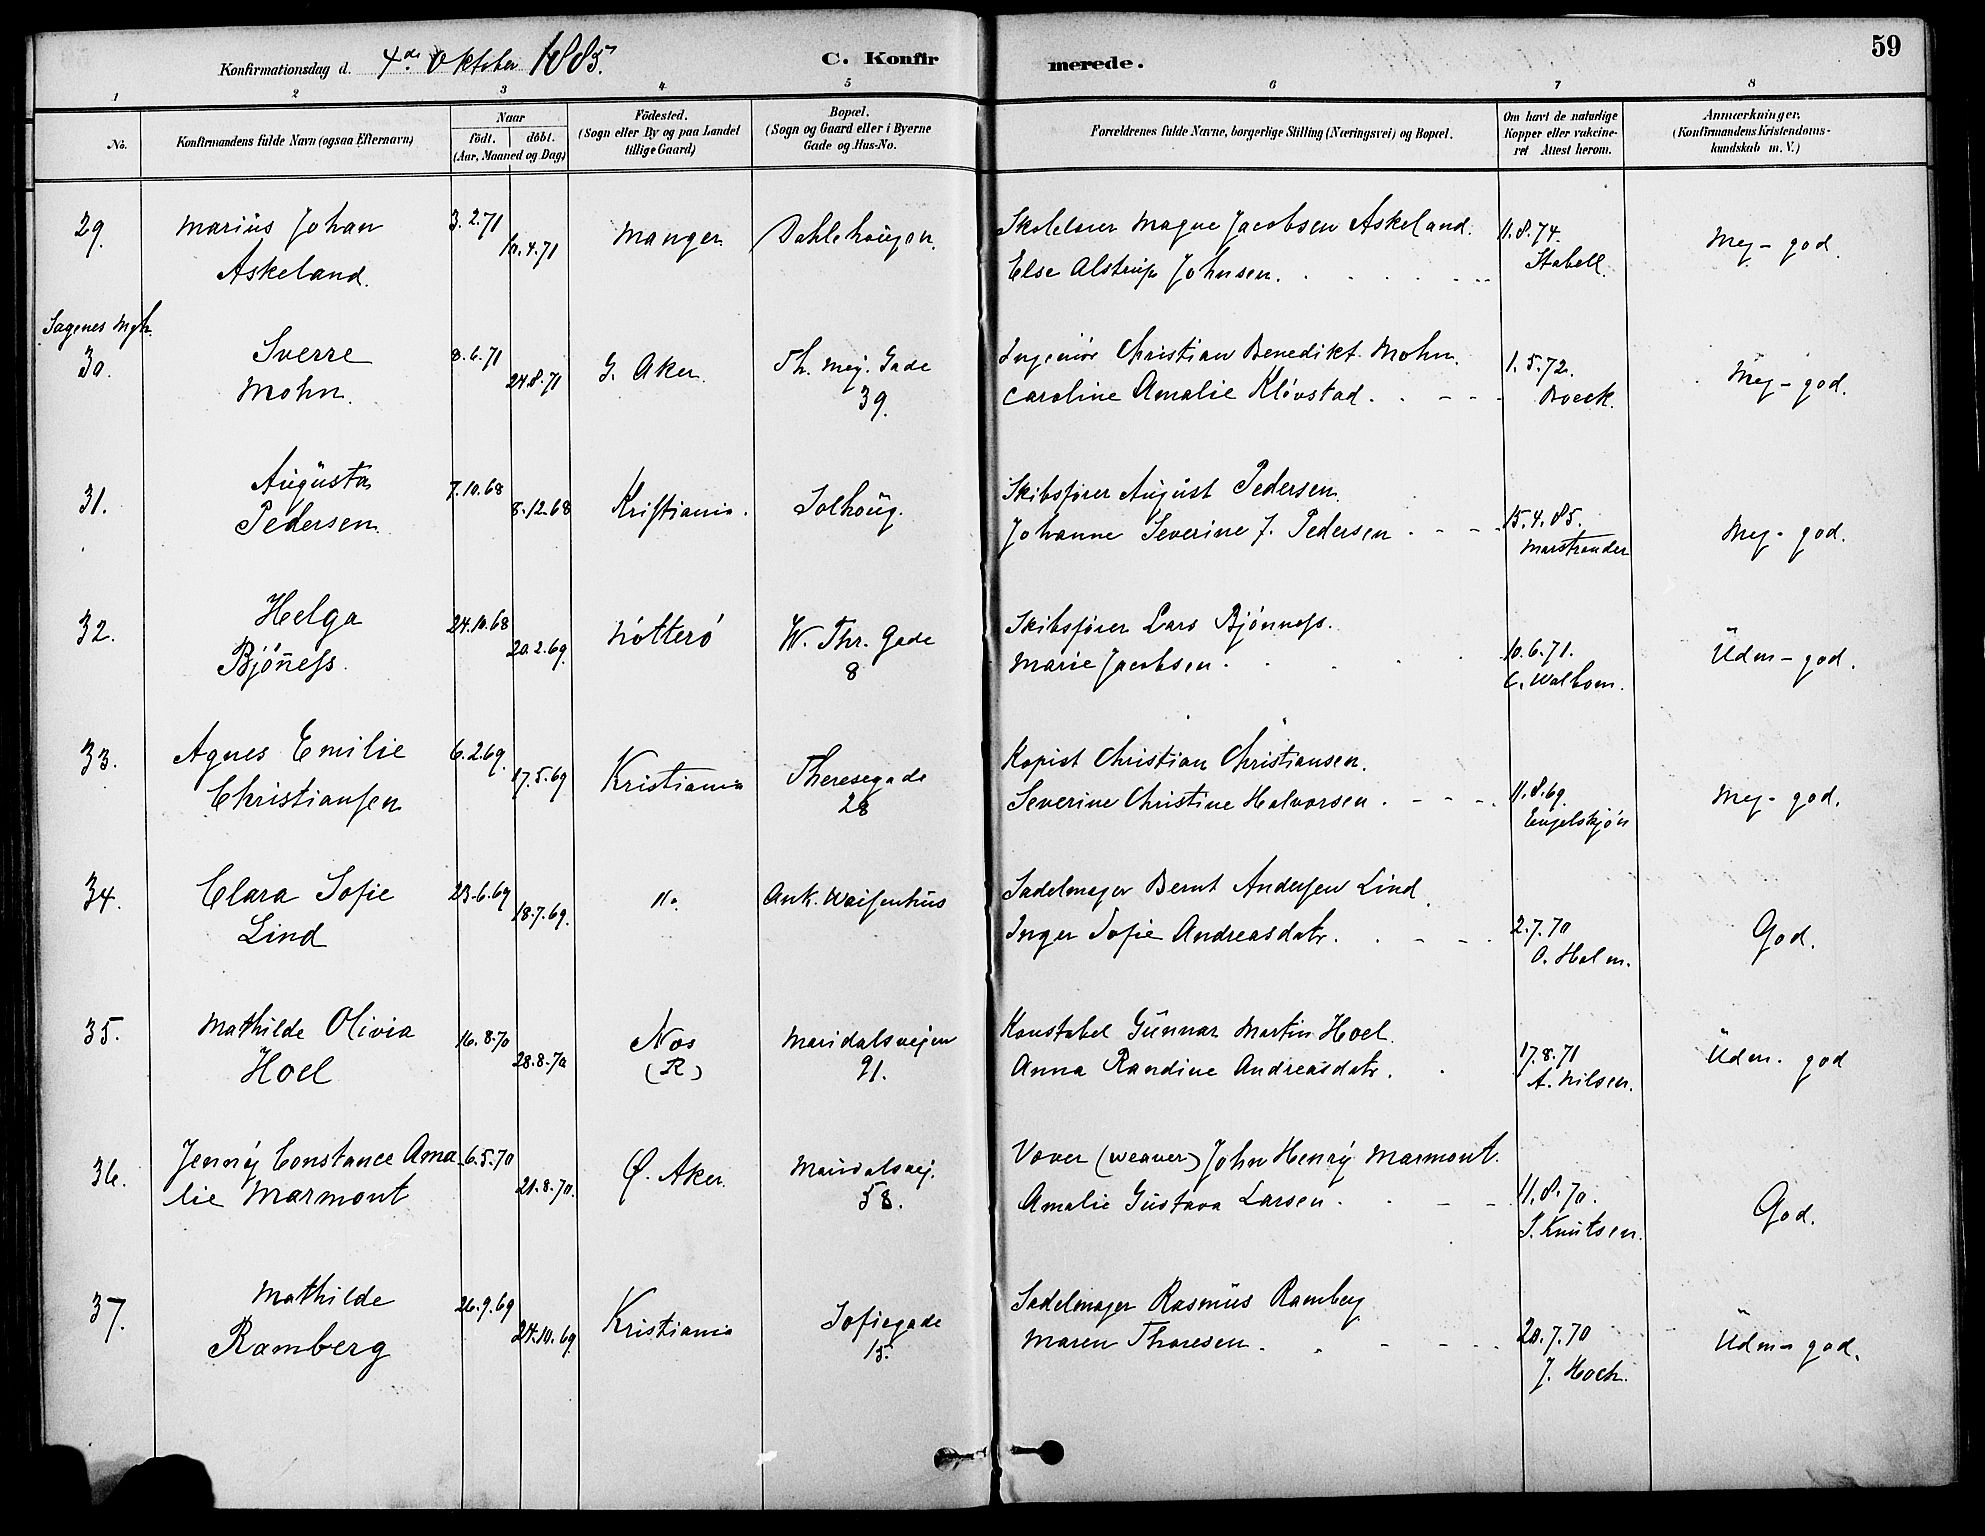 59
Konfirmationsdag d. 4de Oktober 1885.
C. Konfirmerede.
1 2 3 4. 5 6 7 8
No.
Konfirmandens fulde Navn (ogsaa Efternavn)
Naar
födt. döbt.
(Aar, Maaned og Dag)
Födested.
(Sogn eller By og paa Landet
tillige Gaard)
Bopæl.
(Sogn og Gaard eller i Byerne
Gade og Hus-No.
Forældrenes fulde Navne, borgerlige Stilling (Næringsvei) og Bopæl.
Om havt de naturlige
Kopper eller vakcine-
ret Attest herom.
Anmærkninger,
(Konfirmandens Kristendoms-
kundskab m. V.)
29. Marius Johan
Askeland.
3.2.71
10.4.71
Manger
Dahlehougen.
Skolelærer Magne Jacobsen Askeland.
Else Alstrup Johnsen.
11.8.74.
Stabell.
Meg-god.
Sagenes Mgh.
30. Sverre
Mohn.
8.6.71
24.8.71
G. Aker.
Th. Mej. Gade
39.
Ingeniör Christian Benedikt Mohn.
Caroline Amalie Klövstad.
1.5.72.
Boeck.
Meg-god.
31. Augusta
Pedersen
7.10.68
8.12.68
Kristiania.
Solhoug.
Skibsfører August Pedersen
Johanne Severine J. Pedersen
15.4.85.
Marstrander
Meg-god.
32. Helga
Bjöness.
24.10.68
20.2.69
Nötterö
W. Thr. Gade
8
Skibsfører Lars Bjönness.
Marie Jacobsen.
10.6.71.
C. Walbom.
Udm-god.
33. Agnes Emilie
Christiansen
6.2.69.
17.5.69
Kristiania
Theresegade
28
Kopist Christian Christiansen.
Severine Christine Halvorsen.
11.8.69.
Engelskjön
Meg-god.
34. Clara Sofie
Lind
23.6.69
18.7.69.
"
Ank. Waisenhus
Sadelmager Bernt Andersen Lind
Inger Sofie Andreasdatr.
2.7.70
O. Holm.
God.
35. Mathilde Olivia
Hoel
16.8.70
28.8.70
Nos
(R)
Maridalsveien
91.
Konstabel Gunnar Martin Hoel.
Anna Randine Andreasdatr.
17.8.71
A. Nilsen.
Udm. god
36. Jenny Constance Ama
lie Marmont
6.5.70
21.8.70.
Ø. Aker.
Maridalsvej.
58.
Væver (weaver) John Henry Marmont.
Amalie Gustava Larsen.
11.8.70.
S. Knutsen.
God.
37. Mathilde
Ramberg
26.9.69
24.10.69
Kristiania
Sofiegade
15.
Sadelmager Rasmus Ramberg
Maren Thoresen.
20.7.70
J. Hoch.
Udm-god.